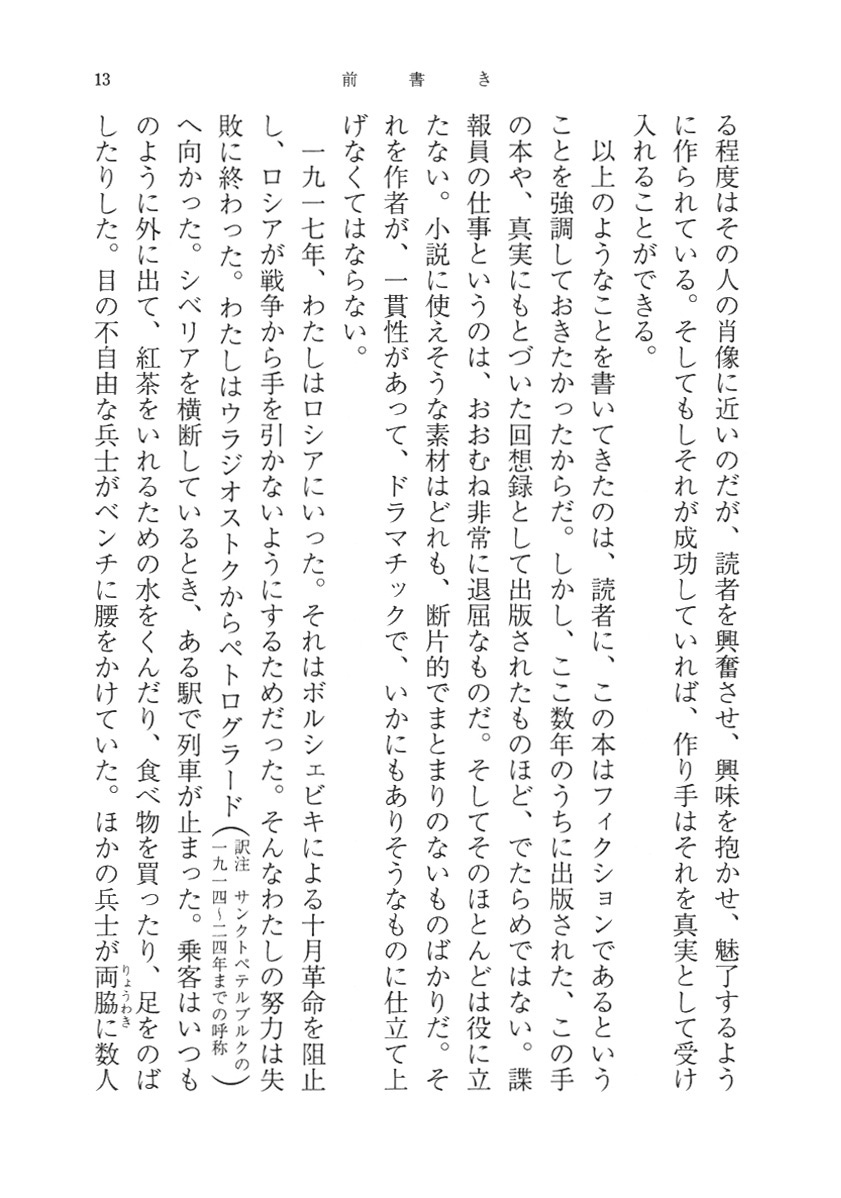 13
前書き
る程度はその人の肖像に近いのだが、読者を興奮させ、興味を抱かせ、魅了するよう
に作られている。そしてもしそれが成功していれば、作り手はそれを真実として受け
入れることができる。
以上のようなことを書いてきたのは、読者に、この本はフィクションであるという
ことを強調しておきたかったからだ。しかし、ここ数年のうちに出版された、この手
の本や、真実にもとづいた回想録として出版されたものほど、でたらめではない。諜
報員の仕事というのは、おおむね非常に退屈なものだ。そしてそのほとんどは役に立
たない。小説に使えそうな素材はどれも、断片的でまとまりのないものばかりだ。そ
れを作者が、一貫性があって、ドラマチックで、いかにもありそうなものに仕立て上
げなくてはならない。
一九一七年、わたしはロシアにいった。それはボルシェビキによる十月革命を阻止
し、ロシアが戦争から手を引かないようにするためだった。そんなわたしの努力は失
敗に終わった。わたしはウラジオストクからペトログラード(訳注 サンクトペテルブルクの一九一四～二四年までの呼称)
へ向かった。シベリアを横断しているとき、ある駅で列車が止まった。乗客はいつも
のように外に出て、紅茶をいれるための水をくんだり、食べ物を買ったり、足をのば
したりした。目の不自由な兵士がベンチに腰をかけていた。ほかの兵士が両脇に数人
りょうわき